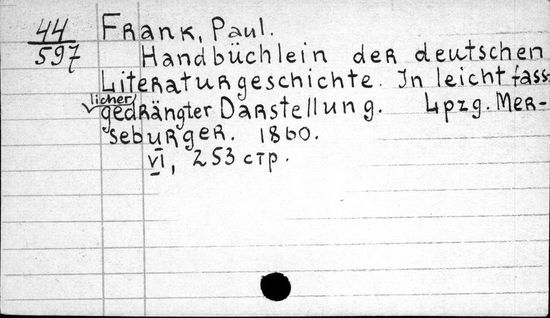 44
597
Frank, Paul.
Handbüchlein der deutschen
Literaturgeschichte. In leicht fass-
licher
gedrängter Darstellung. Lpzg. Mer-
seburger. 1860.
VI, 253 стр.